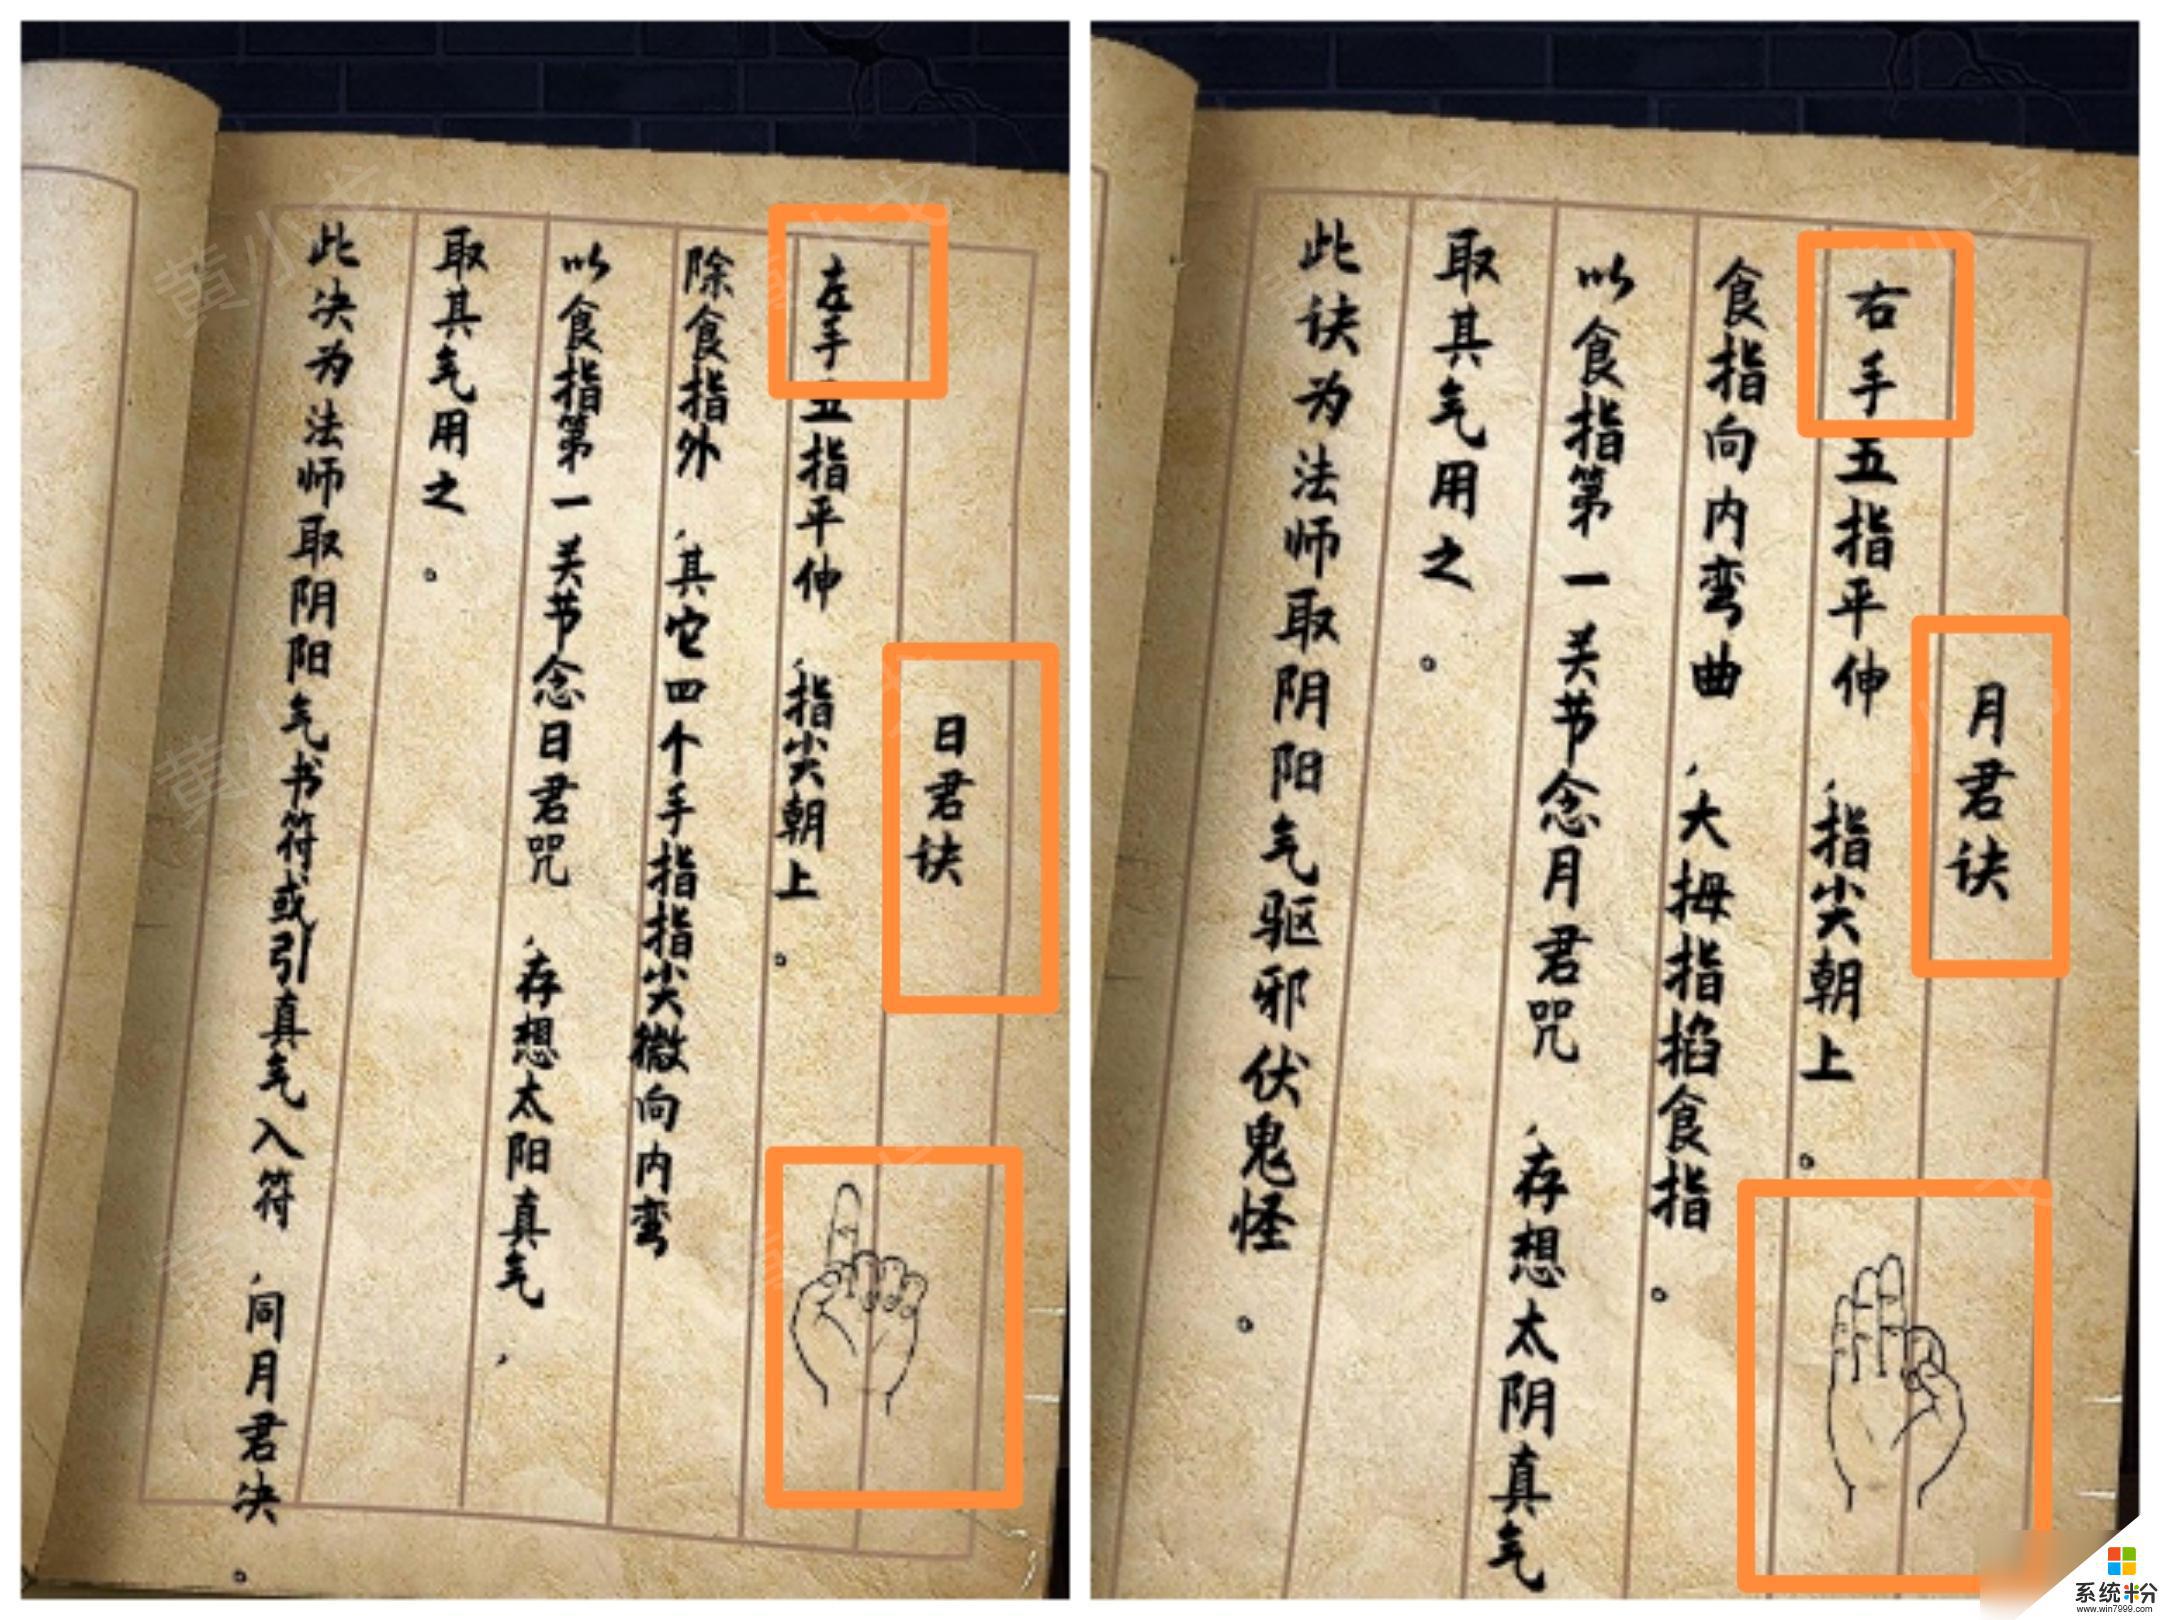 日君诀
左手五指平伸，指尖朝上。
除食指外，其它四个手指指尖微向内弯
以食指第一关节念日君咒，存想太阳真气，
取其气用之。
此决为法师取阴阳气书符或引真气入符，同月君决。
月君诀
右手五指平伸，指尖朝上。
食指向内弯曲，大拇指掐食指。
以食指第一关节念月君咒，存想太阴真气
取其气用之。
此诀为法师取阴阳气驱邪伏鬼怪。
黄小戈
黄小
黄小
系统粉
www.win7999.com